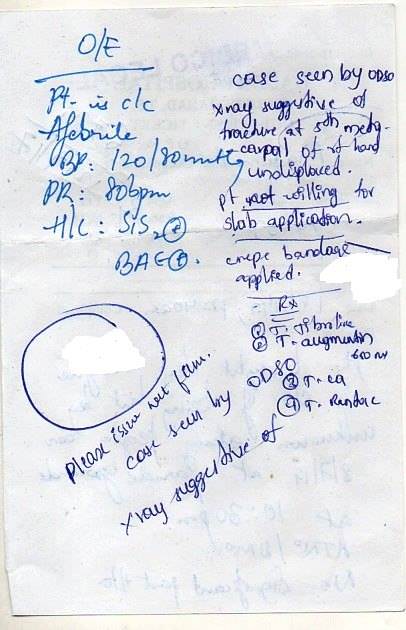 O/E
Pt- is c/c
Afebrile
BP: 120/80mmHg
PR: 80bpm
H/C: S1S2⊕
BAE⊕.
case seen by ODSO
xray suggestive of
fracture at 5th meta-
carpal of rt hand
undisplaced.
pt not willing for
slab application.
crepe bandage
applied.
Rx
① T.
② T. augmentin
ODSO
③ T. ca
④ T. Rantac
Please issue wet
case seen by
xray suggestive of